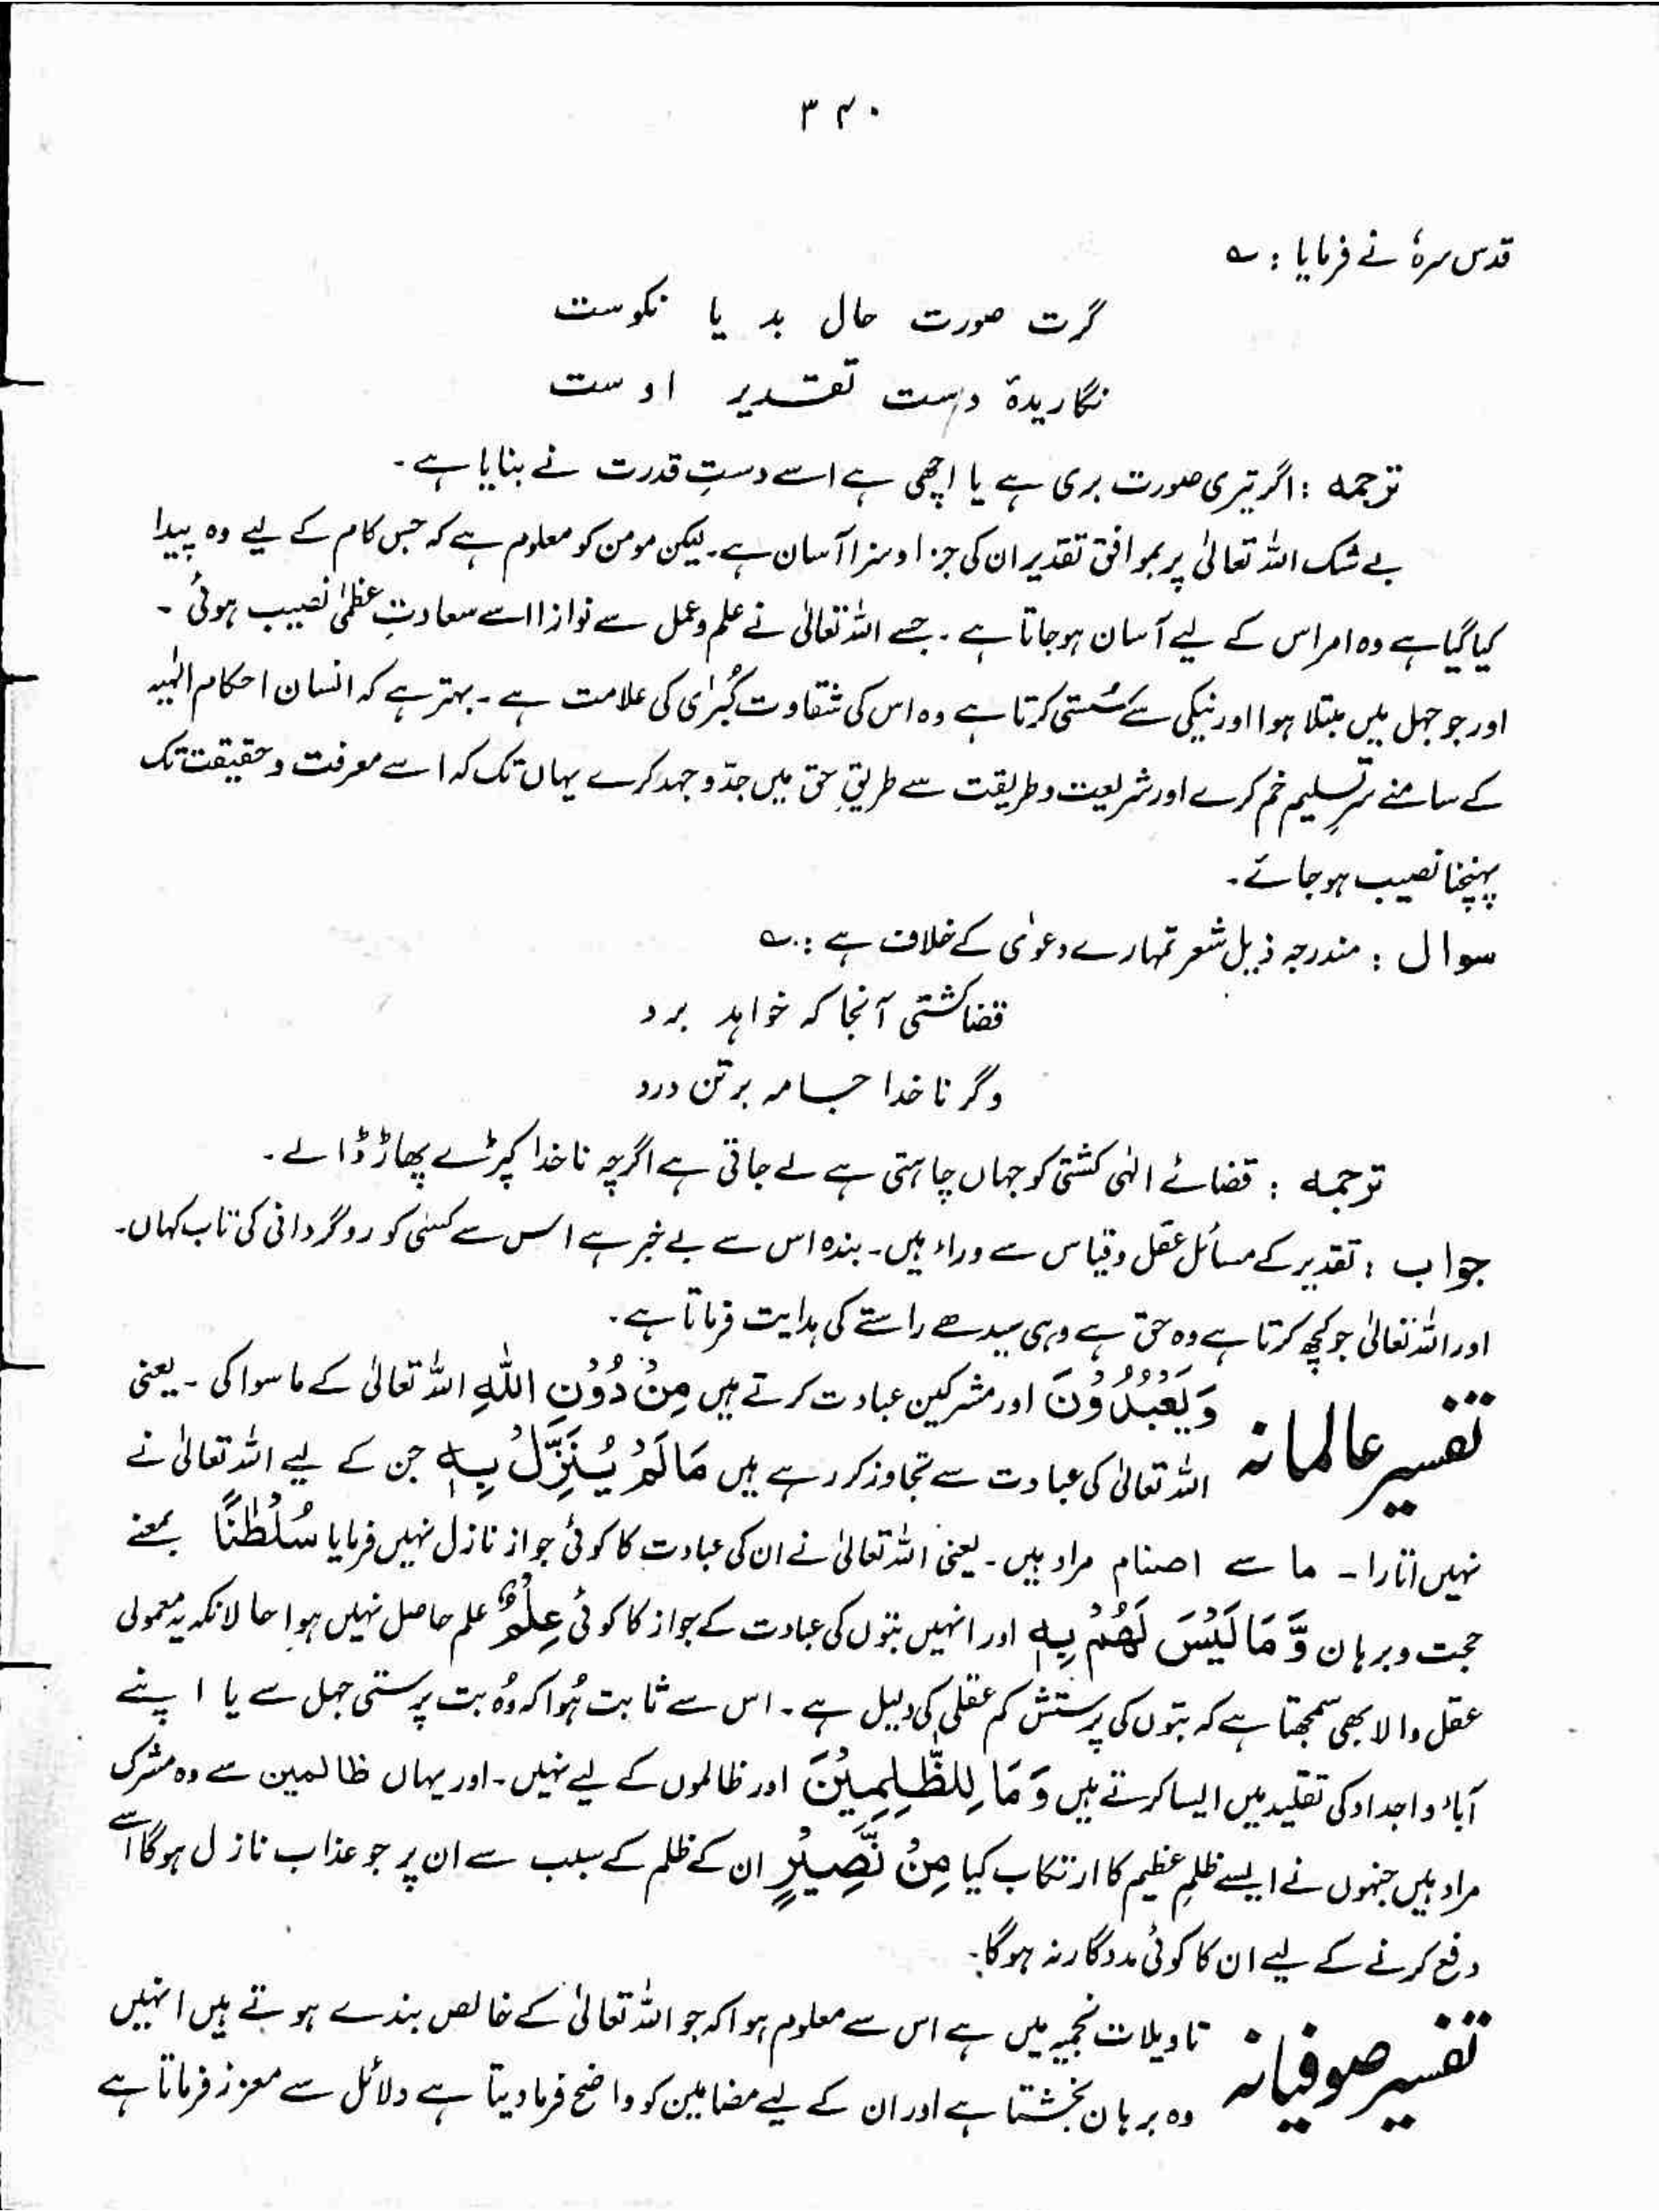 ۳۴۰
قدس سرہٗ نے فرمایا : ؎
گرت صورت حال بد یا نکوست
نگاریدۂ دست تقدیر اوست
ترجمہ : اگر تیری صورت بری ہے یا اچھی ہے اسے دستِ قدرت نے بنایا ہے۔
بے شک اللہ تعالیٰ پر بموافق تقدیر ان کی جزا و سزا آسان ہے۔ لیکن مومن کو معلوم ہے کہ جس کام کے لیے وہ پیدا
کیا گیا ہے وہ امر اس کے لیے آسان ہو جاتا ہے ۔ جسے اللہ تعالیٰ نے علم و عمل سے نوازا اسے سعادتِ عظمیٰ نصیب ہوئی ۔
اور جو جہل میں مبتلا ہوا اور نیکی سے سُستی کرتا ہے وہ اس کی شقاوت کُبرٰی کی علامت ہے ۔ بہتر ہے کہ انسان احکام الٰہیہ
کے سامنے سرِ تسلیم خم کرے اور شریعت و طریقت سے طریقِ حق میں جدّ و جہد کرے یہاں تک کہ اسے معرفت و حقیقت تک
پہنچنا نصیب ہو جائے۔
سوال : مندرجہ ذیل شعر تمہارے دعوٰی کے خلاف ہے : ؎
قضا کشتی آنجا کہ خواہد برد
وگر ناخدا جامہ بر تن درد
ترجمہ : قضائے الٰہی کشتی کو جہاں چاہتی ہے لے جاتی ہے اگرچہ ناخدا کپڑے پھاڑ ڈالے ۔
جواب : تقدیر کے مسائل عقل و قیاس سے وراء ہیں۔ بندہ اس سے بے خبر ہے اس سے کسی کو روگردانی کی تاب کہاں۔
اور اللہ تعالیٰ جو کچھ کرتا ہے وہ حق ہے وہی سیدھے راستے کی ہدایت فرماتا ہے۔
تفسیر عالمانہ وَيَعْبُدُوْنَ اور مشرکین عبادت کرتے ہیں مِنْ دُوْنِ اللّٰهِ اللہ تعالیٰ کے ماسوا کی ۔ یعنی
اللہ تعالیٰ کی عبادت سے تجاوز کر رہے ہیں مَا لَمْ يُنَزِّلْ بِهٖ جن کے لیے اللہ تعالیٰ نے
نہیں اتارا ۔ ما سے اصنام مراد ہیں ۔ یعنی اللہ تعالیٰ نے ان کی عبادت کا کوئی جواز نازل نہیں فرمایا سُلْطٰنًا بمعنے
حجت و برہان وَّمَا لَيْسَ لَهُمْ بِهٖ اور انہیں بتوں کی عبادت کے جواز کا کوئی عِلْمٌ علم حاصل نہیں ہوا حالانکہ یہ معمولی
عقل والا بھی سمجھتا ہے کہ بتوں کی پرستش کم عقلی کی دلیل ہے ۔ اس سے ثابت ہُوا کہ وُہ بت پرستی جہل سے یا اپنے
آباء و اجداد کی تقلید میں ایسا کرتے ہیں وَمَا لِلظّٰلِمِيْنَ اور ظالموں کے لیے نہیں ۔ اور یہاں ظالمین سے وہ مشرک
مراد ہیں جنہوں نے ایسے ظلمِ عظیم کا ارتکاب کیا مِنْ نَّصِيْرٍ ان کے ظلم کے سبب سے ان پر جو عذاب نازل ہوگا اسے
دفع کرنے کے لیے ان کا کوئی مددگار نہ ہوگا۔
تفسیر صوفیانہ تاویلات نجمیہ میں ہے اس سے معلوم ہوا کہ جو اللہ تعالیٰ کے خالص بندے ہوتے ہیں انہیں
وہ برہان بخشتا ہے اور ان کے لیے مضامین کو واضح فرما دیتا ہے دلائل سے معزز فرماتا ہے